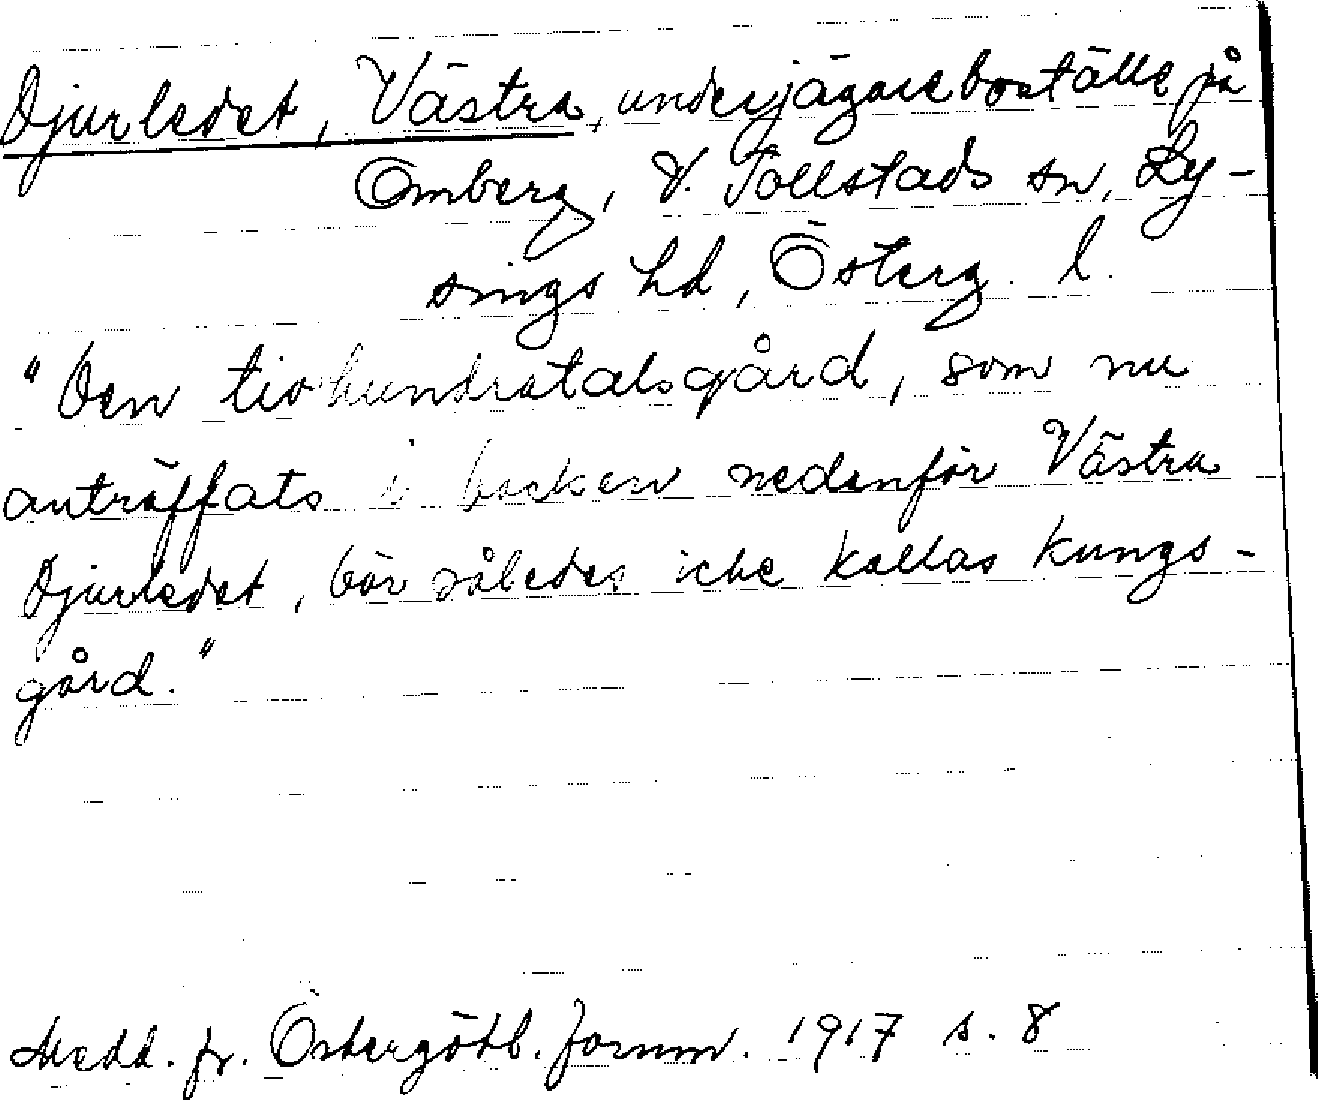 Djurledet, Västra, underjägareboställe på
Omberg, V. Tollstads sn, Ly-
sings hd, Österg. l.
"Den tiohundratalsgård, som nu
anträffats i backen nedanför Västra
Djurledet, bör således icke kallas kungs-
gård."
Medd. fr. Östergötl. fornm. 1917 s. 8